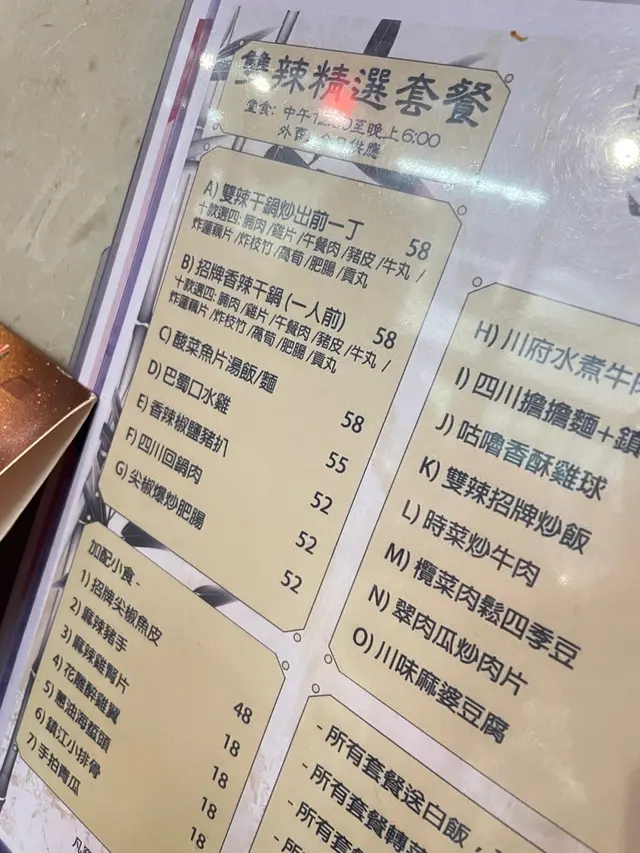 雙辣精選套餐
堂食: 中午12:00至晚上6:00
供應
A) 雙辣干鍋炒出前一丁 58
十款選四: 腩肉 /雞片 /午餐肉 /豬皮 /牛丸 /
炸蓮藕片 /炸枝竹 /萵荀 /肥腸 /貢丸
B) 招牌香辣干鍋 (一人前) 58
十款選四: 腩肉 /雞片 /午餐肉 /豬皮 /牛丸 /
炸蓮藕片 /炸枝竹 /萵荀 /肥腸 /貢丸
C) 酸菜魚片湯飯/麵 58
D) 巴蜀口水雞 55
E) 香辣椒鹽豬扒 52
F) 四川回鍋肉 52
G) 尖椒爆炒肥腸 52
H) 川府水煮牛肉
I) 四川擔擔麵+
J) 咕嚕香酥雞球
K) 雙辣招牌炒飯
L) 時菜炒牛肉
M) 欖菜肉鬆四季豆
N) 翠肉瓜炒肉片
O) 川味麻婆豆腐
加配小食 -
1) 招牌尖椒魚皮 48
2) 麻辣豬手 18
3) 麻辣雞腎片 18
4) 花雕醉雞翼 18
5) 蔥油海蜇頭 18
6) 鎮江小排骨
7) 手拍青瓜
- 所有套餐送白飯，
- 所有套餐轉菜
- 所有套餐